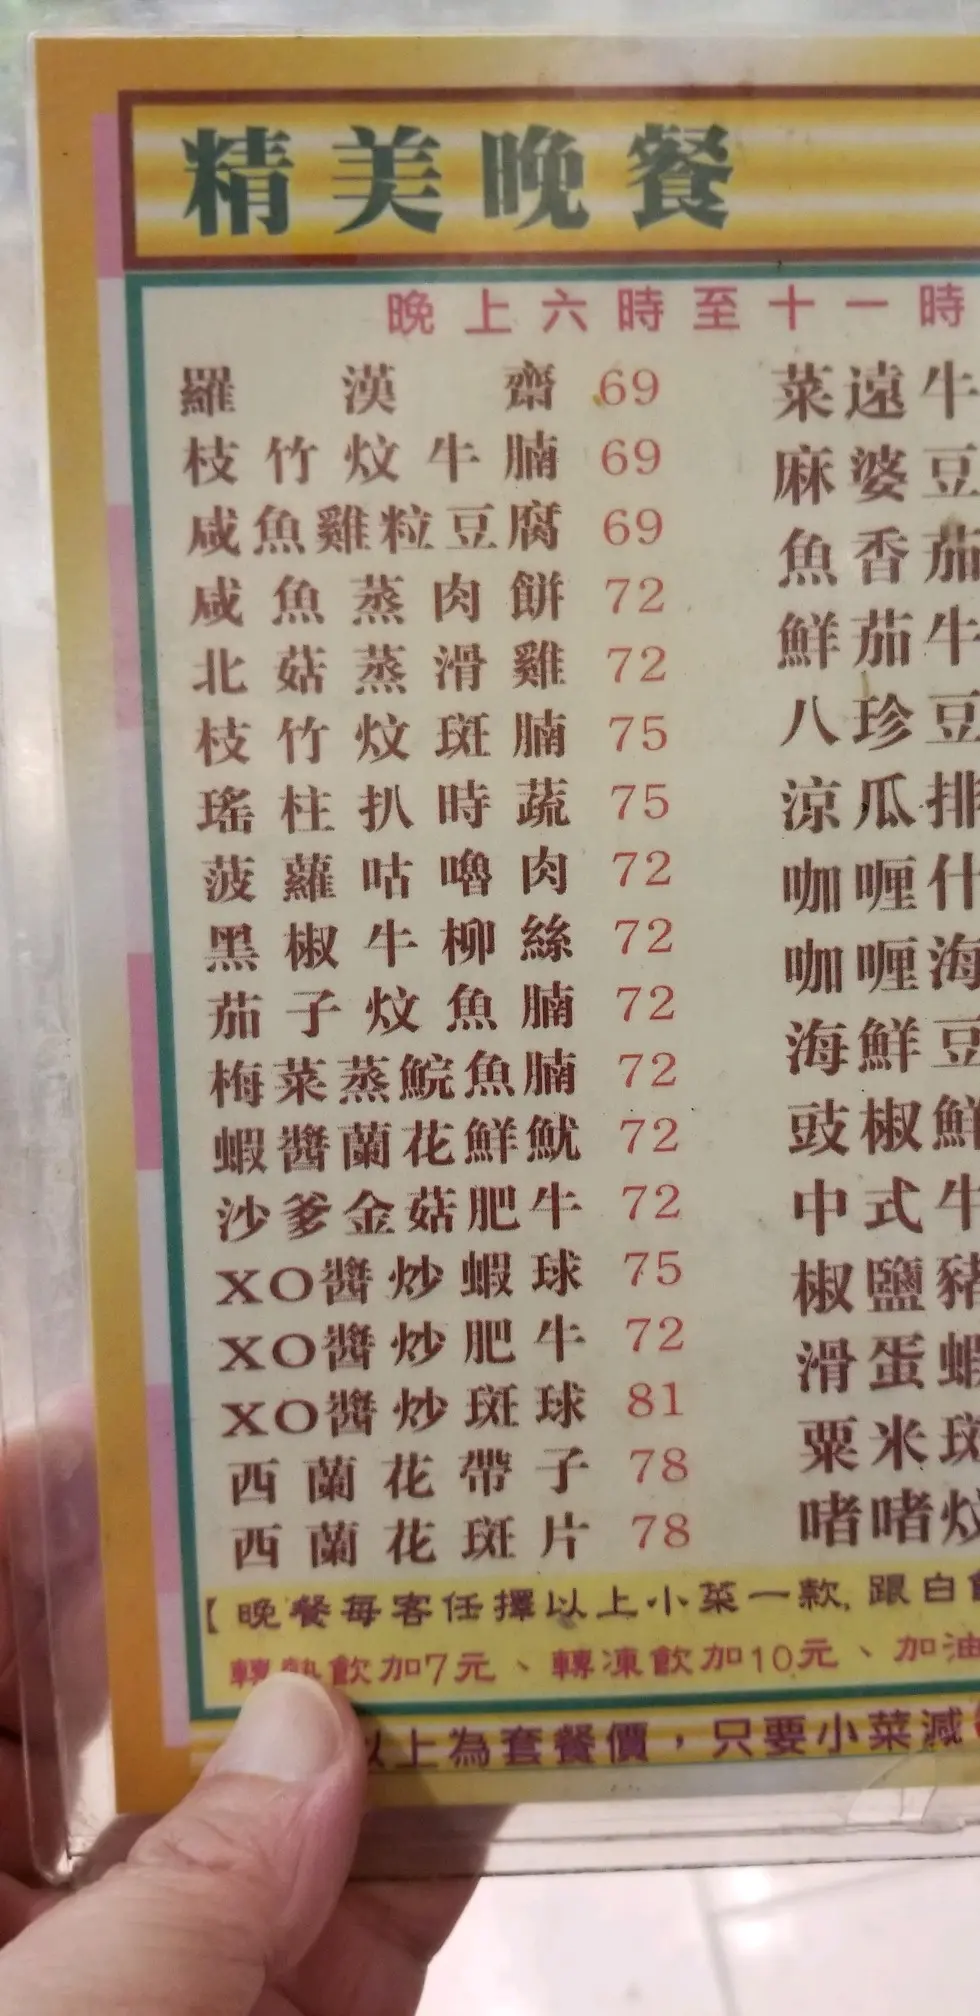 精美晚餐
晚上六時至十一時
羅漢齋 69
枝竹炆牛腩 69
咸魚雞粒豆腐 69
咸魚蒸肉餅 72
北菇蒸滑雞 72
枝竹炆斑腩 75
瑤柱扒時蔬 75
菠蘿咕嚕肉 72
黑椒牛柳絲 72
茄子炆魚腩 72
梅菜蒸鯇魚腩 72
蝦醬蘭花鮮魷 72
沙爹金菇肥牛 72
XO醬炒蝦球 75
XO醬炒肥牛 72
XO醬炒斑球 81
西蘭花帶子 78
西蘭花斑片 78
菜遠牛
麻婆豆
魚香茄
鮮茄牛
八珍豆
涼瓜排
咖喱什
咖喱海
海鮮豆
豉椒鮮
中式牛
椒鹽豬
滑蛋蝦
粟米斑
啫啫炆
【晚餐每客任擇以上小菜一款, 跟白
轉熱飲加7元、轉凍飲加10元、加油
以上為套餐價，只要小菜減